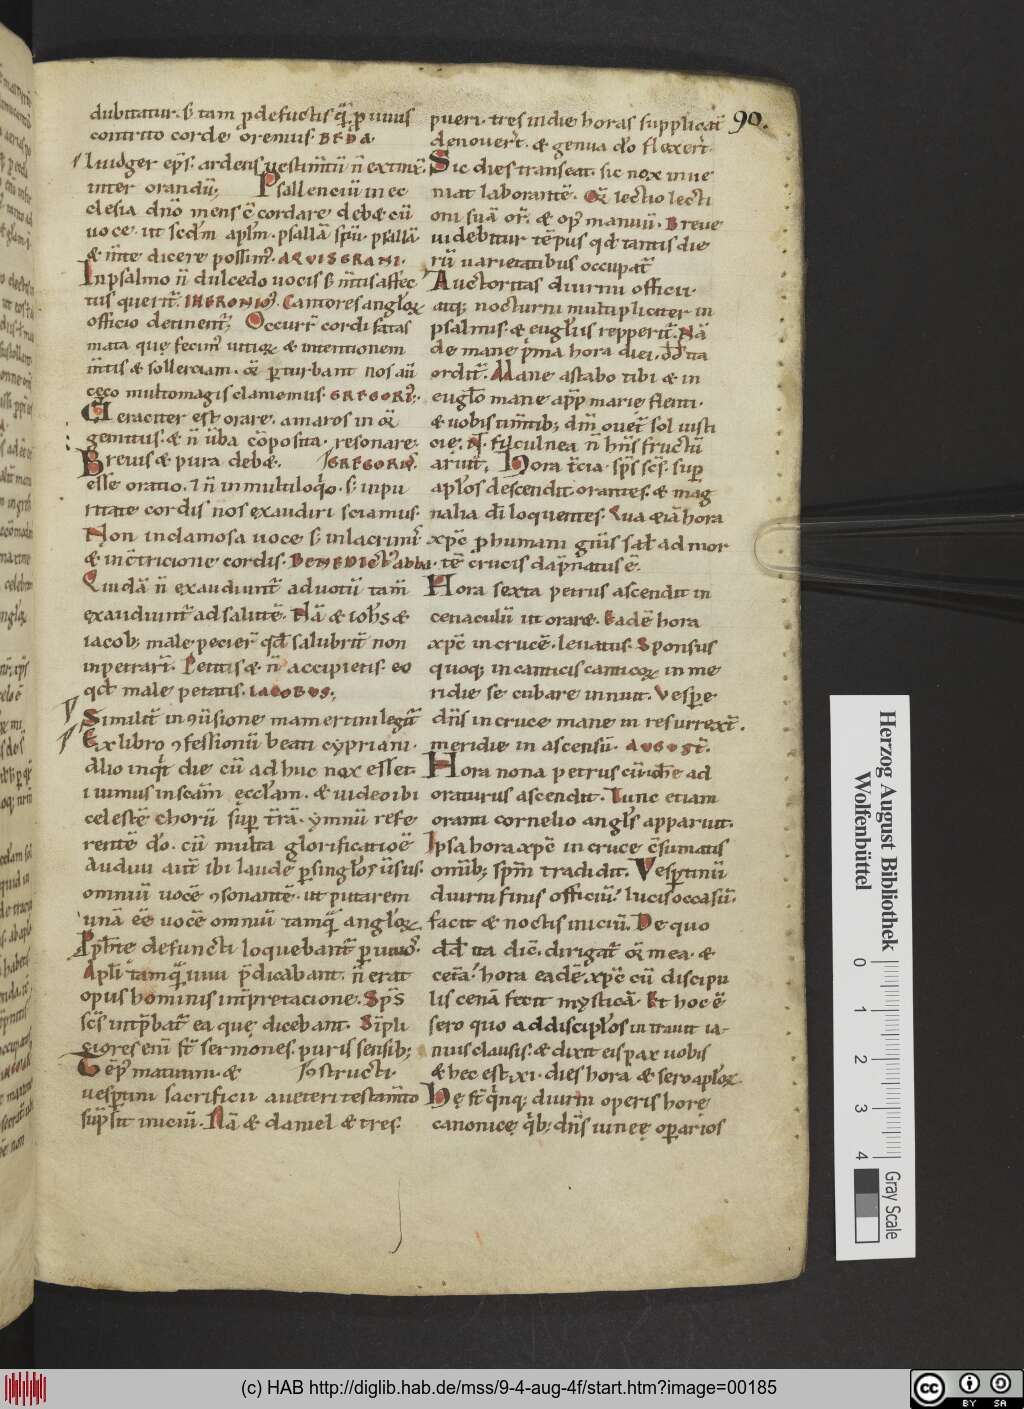 90.
dubitatur. s; tam p defunctis q̃. p uiuis
contrito corde oremus. BEDA.
Liudger ep̃s. ardens uestim̃tũ ñ extinx̃.
inter orandũ; Psallenciũ in ec
clesia dño mens c̃cordare debæ cũ
uoce. ut sc̃dm apl̃m. psallã spũ. psallã
& m̃te dicere possim'. AQUISGRANI.
In psalmo ñ dulcedo uocis s; m̃tis affec
tus querit̃. IHERONIO'. Cantores angl̃oꝝ
officio detinent̃; Occurr̃ cordi fatas
mata quę fecim' uitiꝙ & intentionem
m̃tis & sollerciam. oꝝ p̱turbant nos aũ
cęco multo magis clamemus. GREGORI';
Veraciter est orare. amaros in oꝝ
gemitus. & ñ ũba cõposita. resonare;
Breuis & pura debæ. GREGORI'.
esse oratio. 7 ñ in multiloq̃o. s; in pu
ritate cordis nos exaudiri sciamus.
Non in clamosa uoce s; in lacrimĩ
& in c̃tricione cordis. BENEDICT' abba.
Quidã ñ exaudiunt̃ ad uotũ tam̃
exaudiunt̃ ad salutẽ. Nã & ioh̃s &
iacob; male pecier̃ qđ salubrit̃ non
inpetrar̃t. Petitis & ñ accipietis. eo
qđ male petatis. IACOBUS;
Similit̃ in ꝯuisione mamertini legit̃
Ex libro ꝯfessionũ beati cypriani.
Alio inq̃t die cũ adhuc nox esset.
iuimus in scãm ęccl̃am. & uideo ibi
celestẽ chorũ sup̱ t̃rã. ymnũ refe
rentẽ d̃o. cũ multa glorificatiõe
Audiui aut̃ ibi laudẽ p̱ singl̃os ũsus.
omniũ uocẽ ꝯsonantẽ. ut putarem
unã ẽẽ uocẽ omniũ tamq̃ angl̃oꝝ.
Pph̃te defuncti loquebant̃ p̱ uiuo'.
Apl̃i tamq̃ uiui p̃dicabant. ñ erat
opus hominis int̃pretacione. Sp̃s
sc̃s int̃p̃bat̃ ea quę dicebant. Sĩpli
ciores eni ft̃ sermones. puris sensib;
Temp' matutini. & Instructi.
uesp̱tini sacrificii a ueteri testam̃to
sup̃sit iniciũ. Nã & daniel & tres.
pueri. tres in die horas supplicat̃
denouer̃t. & genua d̃o flexer̃t.
Sic dies transeat. sic nox inue
niat laborantẽ. Oꝝ lectio lecti
oni suã or̃. & op' manuũ. Breue
uidebitur tẽpus qđ tantis die
rũ uarietatibus occupat̃
Auctoritas diurni officii.
atq; nocturni multipliciter in
psalmis. & eugl̃iis repperit̃. Nã
de mane p̃ma hora diei. dđ ita
ordit̃. Mane astabo tibi & in
eugl̃o mane app̃ marie flenti.
& uobis tim̃tib; dm̃ oriet̃ sol iusti
cię. N. ficulnea ñ hñs fructũ
aruit; Hora t̃cia. sp̃s sc̃s. sup̱
apl̃os descendit. orantes. & mag
nalia dĩ loquentes. Qua & iã hora
xp̃c p humani gñis sal̃ ad mor
tẽ crucis dãpnatus ẽ.
Hora sexta petrus ascendit in
cenaculũ ut orare. Eadẽ hora
xp̃c in crucẽ. leuatus. Sponsus
quoq; in canticis canticoꝝ in me
ridie se cubare innuit. Vesp̱e
dñs in cruce mane in resurrext̃.
meridie in ascensũ. AUGUST̃.
Hora nona petrus cũ ioh̃e ad
oraturus ascendit. Tunc etiam
oranti cornelio angl̃s apparuit.
Ipsa hora xp̃c in cruce c̃sumatis
om̃ib; spm̃ tradidit. Vesp̱tinũ
diurni finis officiũ. lucis occasũ.
facit & noctis iniciũ. De quo
dđ ita dic̃. dirigat̃ oꝝ mea. &
cet̃a. hora eadẽ. xp̃c cũ discipu
lis cenã fecit mẏsticã. Et hoc ẽ
sero quo ad discipl̃os intrauit ia-
nuis clausis. & dixit eis pax uobis
& hec est. xi. diei hora & sero apl̃oꝝ
Hę ft̃ q̃nq; diurni operis horę
canonicę q̃b; dñs iuneę op̱arios
Herzog August Bibliothek
Wolfenbüttel
0 1 2 3 4
Gray Scale
(c) HAB http://diglib.hab.de/mss/9-4-aug-4f/start.htm?image=00185
cc BY SA